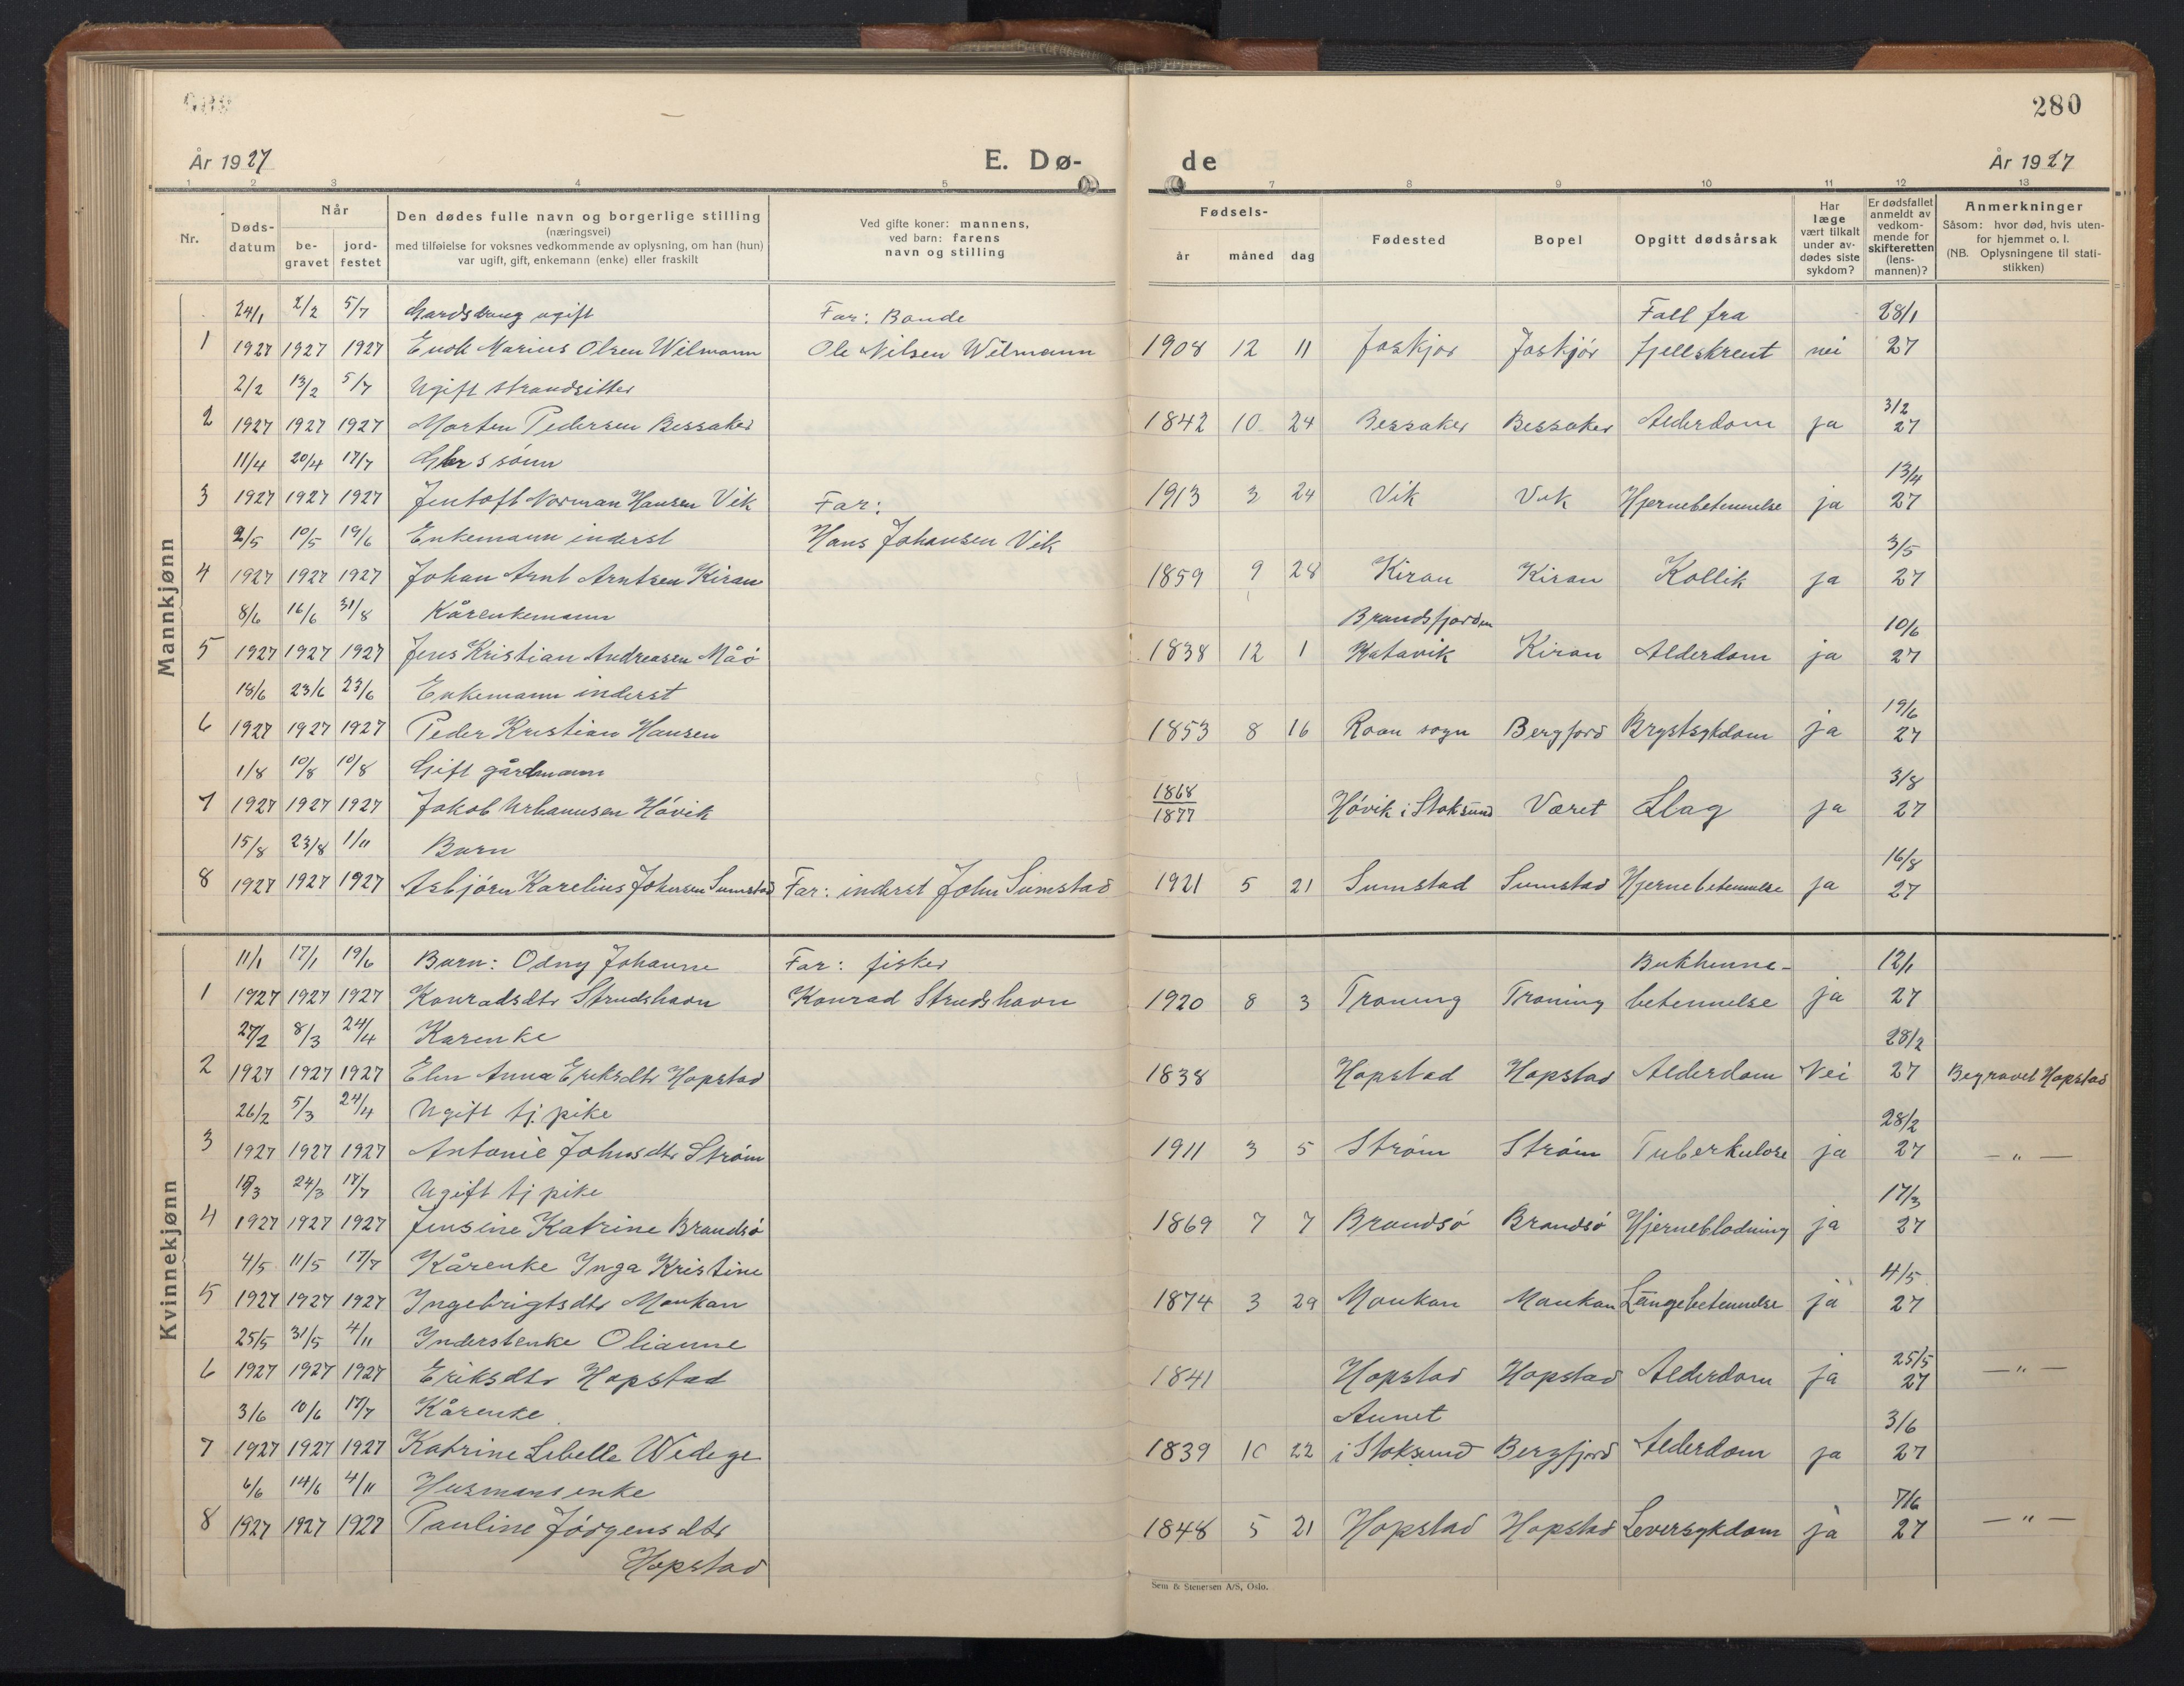 280
År 1927
E. Dø-
de
År 1927
1 2 3 4 5 7 8 9 10 11 12 13
Nr.
Døds-
datum
Når
be-
gravet
jord-
festet
Den dødes fulle navn og borgerlige stilling
(næringsvei)
med tilføielse for voksnes vedkommende av oplysning, om han (hun)
var ugift, gift, enkemann (enke) eller fraskilt
Ved gifte koner: mannens,
ved barn: farens
navn og stilling
Fødsels-
år måned dag
Fødested
Bopel
Opgitt dødsårsak
Har
læge
vært tilkalt
under av-
dødes siste
sykdom?
Er dødsfallet
anmeldt av
vedkom-
mende for
skifteretten
(lens-
mannen)?
Anmerkninger
Såsom: hvor død, hvis uten-
for hjemmet o. l.
(NB. Oplysningene til stati-
stikken)
Mannkjønn
24/1 2/2 5/7 Gardsdreng ugift Far: Bonde Fall fra 28/1
1 1927 1927 1927 Enok Marius Olsen Wilmann Ole Nilsen Wilmann 1908 12 11 Joskjør Joskjør fjellskrent nei 27
2/2 13/2 5/7 Ugift strandsitter 3/2
2 1927 1927 1927 Morten Pedersen Bessaker 1842 10 24 Bessaker Bessaker Alderdom ja 27
11/4 20/4 17/7 Gbr s sønn 13/4
3 1927 1927 1927 Jentoft Norman Hansen Vik Far: 1913 3 24 Vik Vik Hjernebetennelse ja 27
2/5 10/5 19/6 Enkemann inderst Hans Johansen Vik 3/5
4 1927 1927 1927 Johan Arnt Arntsen Kiran 1859 9 28 Kiran Kiran Kollik ja 27
8/6 16/6 31/8 Kårenkemann Brandsfjorden 10/6
5 1927 1927 1927 Jens Kristian Andreasen Måø 1838 12 1 Katavik Kiran Alderdom ja 27
18/6 23/6 23/6 Enkemann inderst 19/6
6 1927 1927 1927 Peder Kristian Hansen 1853 8 16 Roan sogn Bergfjord Brystsykdom ja 27
1/8 10/8 10/8 Gift gårdmann 1868 3/8
7 1927 1927 1927 Jakob Urbanusen Høvik 1877 Høvik i Stoksund Været Slag ja 27
15/8 23/8 1/11 Barn 16/8
8 1927 1927 1927 Asbjørn Karelius Johnsen Sumstad Far: inderst John Sumstad 1921 5 21 Sumstad Sumstad Hjernebetennelse ja 27
Kvinnekjønn
11/1 17/1 19/6 Barn: Odny Johanne Far: fisker Bukhinne- 12/1
1 1927 1927 1927 Konradsdtr Strudshavn Konrad Strudshavn 1920 8 3 Traning Traning betennelse ja 27
27/2 8/3 24/4 Karenke 28/2
2 1927 1927 1927 Elen Anna Eriksdtr Hopstad 1838 Hopstad Hopstad Alderdom Nei 27 Begravet Hopstad
26/2 5/3 24/4 Ugift tj. pike 28/2
3 1927 1927 1927 Antonie Johnsdtr Strøm 1911 3 5 Strøm Strøm Tuberkulose ja 27 — " —
18/3 24/3 17/7 Ugift tj pike 17/3
4 1927 1927 1927 Jensine Katrine Brandsø 1869 7 7 Brandsø Brandsø Hjerneblødning ja 27
4/5 11/5 17/7 Kårenke Inga Kristine 4/5
5 1927 1927 1927 Ingebrigtsdtr Monkan 1874 3 29 Monkan Monkan Lungebetennelse ja 27
25/5 31/5 4/11 Inderstenke Olianne 25/5
6 1927 1927 1927 Eriksdtr Hopstad 1841 Hopstad Hopstad Alderdom ja 27 — " —
3/6 10/6 17/7 Kårenke Aunet 3/6
7 1927 1927 1927 Katrine Lebelle Wedege 1839 10 22 i Stoksund Bergfjord Alderdom ja 27
6/6 14/6 4/11 Husmansenke 7/6
8 1927 1927 1927 Pauline Jørgensdtr 1848 5 21 Hopstad Hopstad Leversykdom ja 27 — " —
Hopstad
Sem & Stenersen A/S, Oslo.